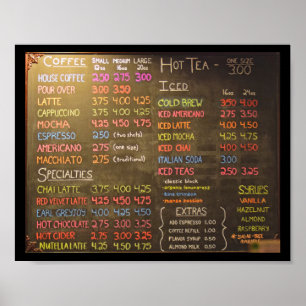 COFFEE SMALL 12oz MEDIUM 16oz LARGE 20oz
HOUSE COFFEE 2.50 2.75 3.00
POUR OVER 3.00 3.50
LATTE 3.75 4.00 4.25
CAPPUCCINO 3.75 4.00 4.25
MOCHA 4.25 4.50 4.75
ESPRESSO 2.50 (two shots)
AMERICANO 2.75 (one size)
MACCHIATO 2.75 (traditional)
SPECIALTIES
CHAI LATTE 3.75 4.00 4.25
RED VELVET LATTE 4.25 4.50 4.75
EARL GREYTOS
HOT CHOCOLATE 2.75 3.00 3.25
HOT CIDER 2.75 3.00 3.25
NUTELLA LATTE 4.25 4.50 4.75
HOT TEA - ONE SIZE 3.00
ICED 16oz 24oz
COLD BREW 3.50 4.00
ICED AMERICANO 2.75 3.25
ICED LATTE 4.00 4.50
ICED MOCHA 4.25 4.75
ICED CHAI 4.00 4.50
ITALIAN SODA 3.00
ICED TEAS 2.50 3.25
-classic black
-organic lemongrass
-mango passion
EXTRAS
ADD ESPRESSO 1.00
COFFEE REFILL 1.00
FLAVOR SYRUP .50
ALMOND MILK .50
SYRUPS
VANILLA
HAZELNUT
ALMOND
RASPBERRY